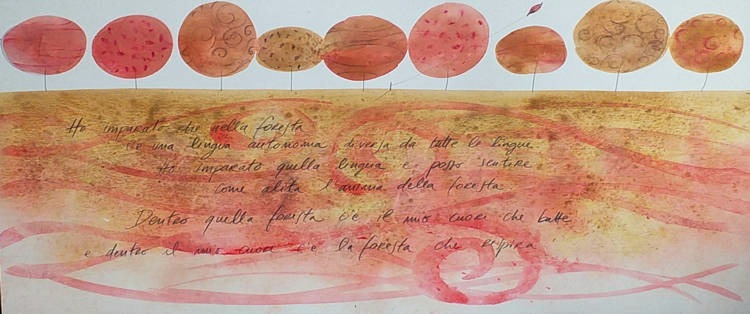 Ho imparato che nella foresta
c'è una lingua autonoma diversa da tutte le lingue
Ho imparato quella lingua e posso sentire
come alita l'anima della foresta
Dentro quella foresta c'è il mio cuori che batte
e dentro il mio cuori c'è la foresta che respira